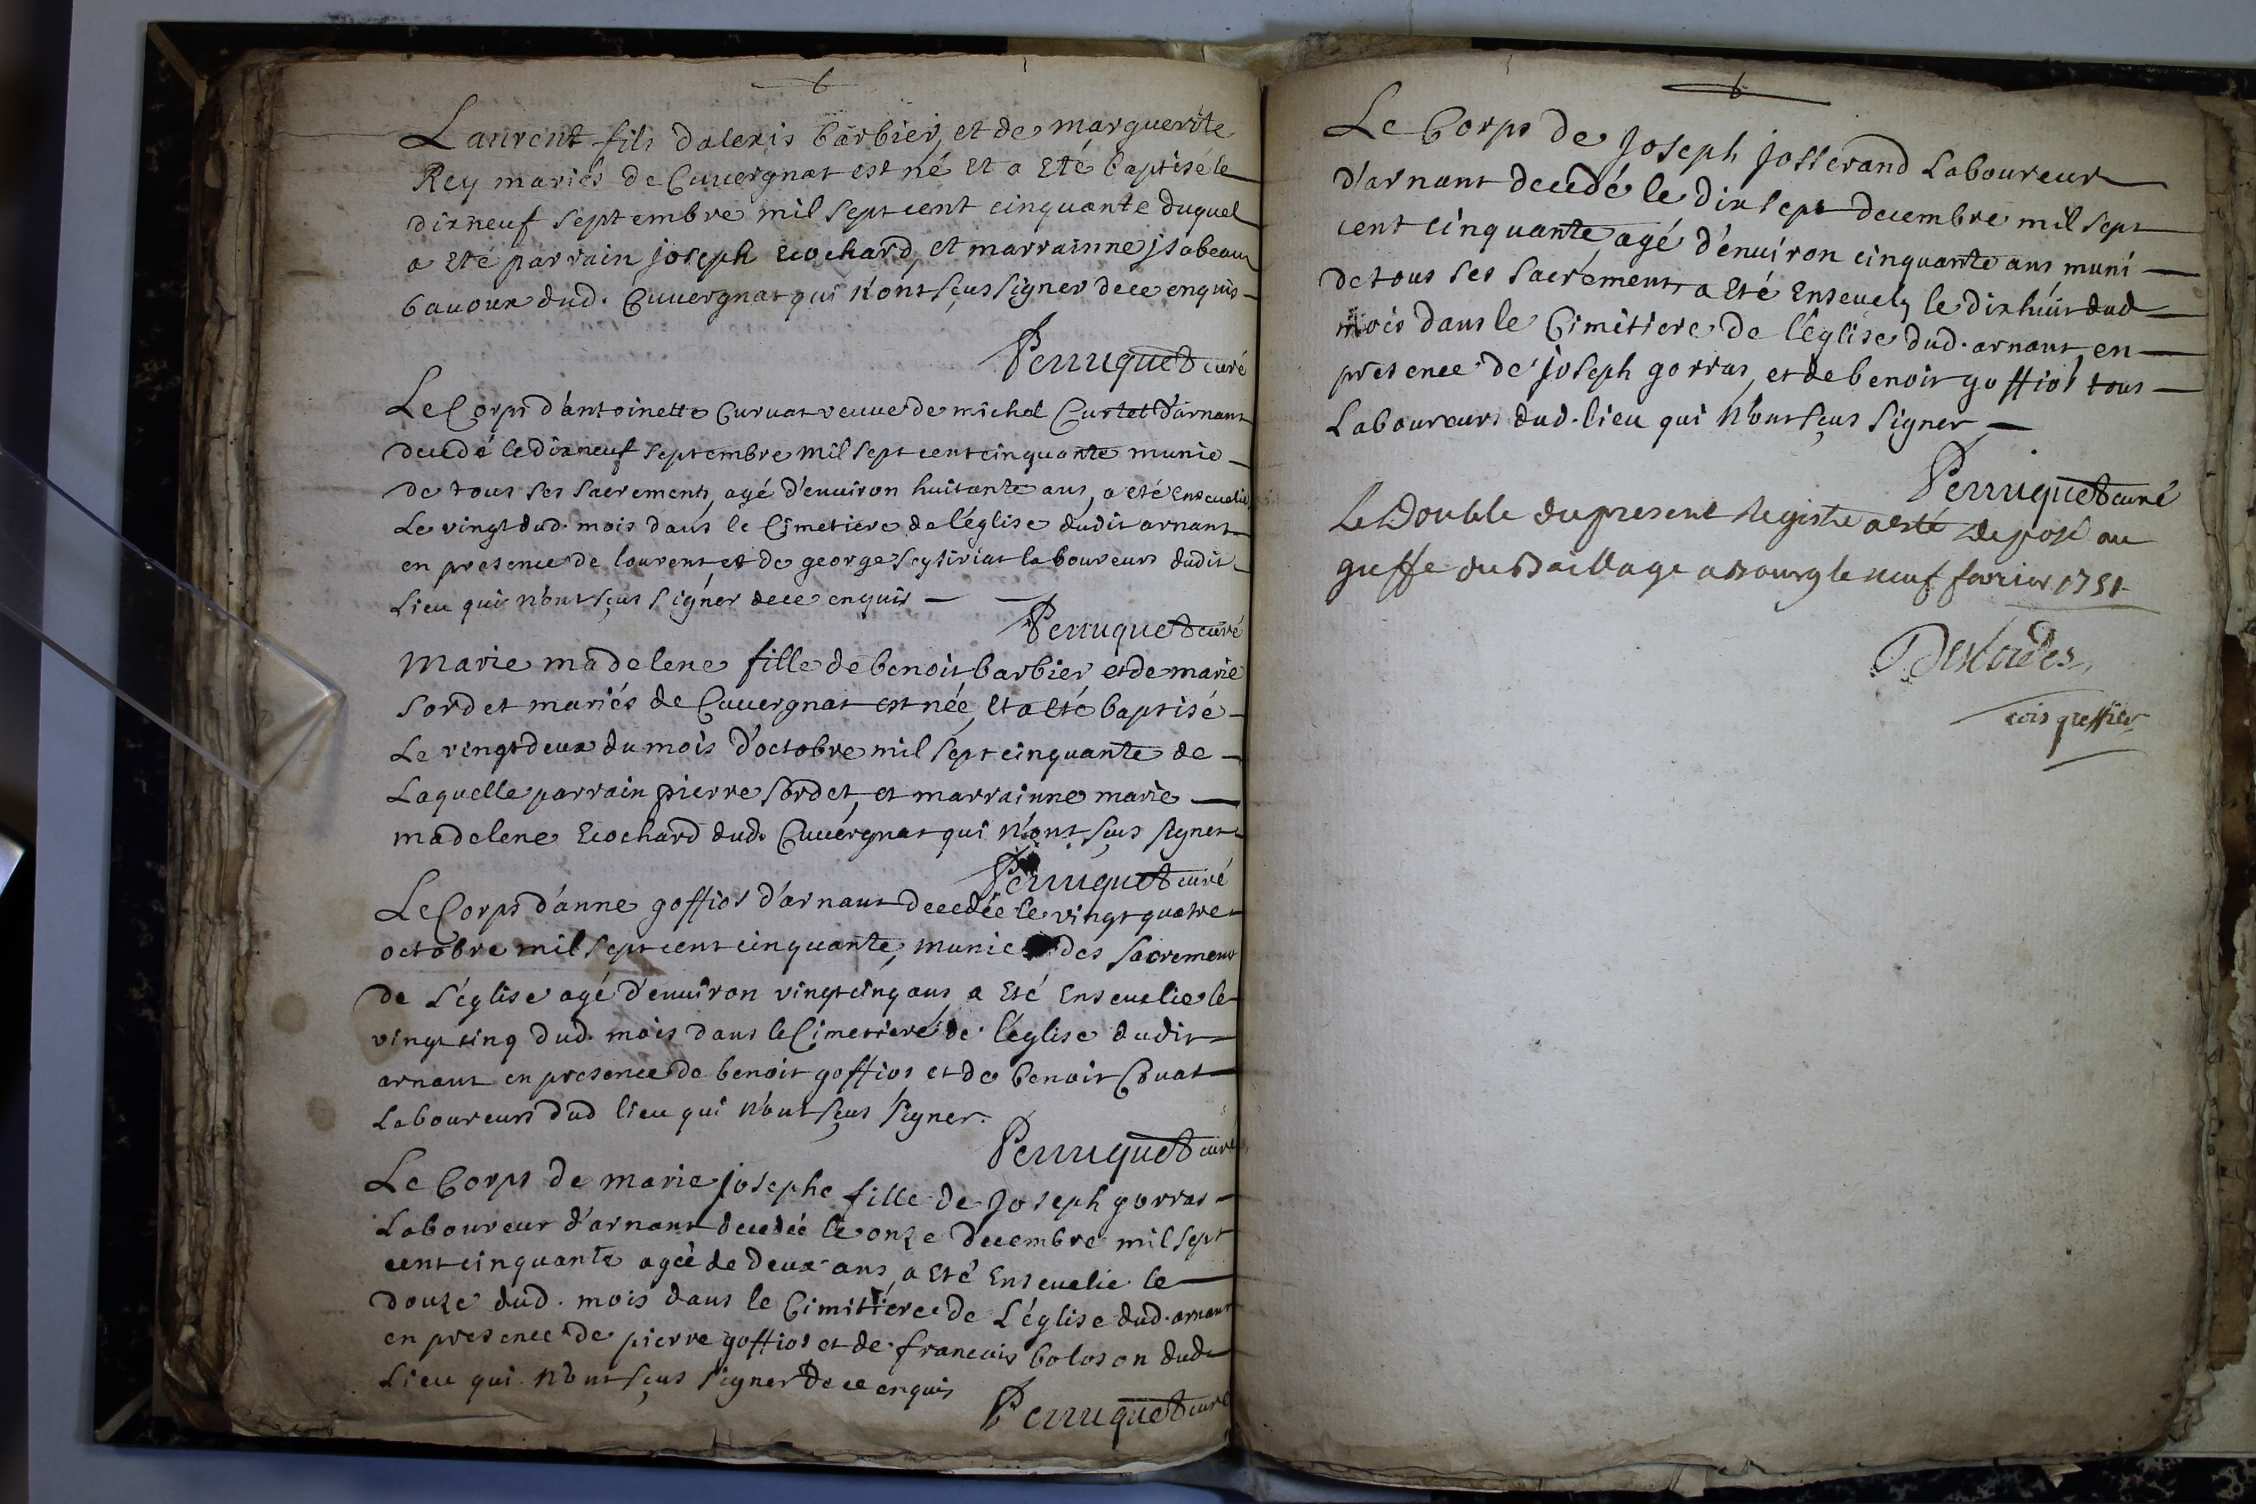 6
Laurent fils dalexis barbier, et de marguerite
Rey mariés de Cuuergnat est né et a eté baptisé le
dixneuf septembre mil sept cent cinquante duquel
a eté parrain joseph ecochard, et marrainne jsabeau
bauoux dud. Cuuergnat qui n'ont sçus signer de ce enquis
Perruquet curé
Le Corps d'antoinette Curuat veuue de michel Curtet d'arnant
decedé le dixneuf septembre mil sept cent cinquante munie
de tous ses sacrements, agé d'enuiron huitante ans, a eté enseuelie
Le vingt dud. mois dans le Cimetiere de l'église dudit arnant
en presence de laurent et de george laboureurs dudit
Lieu qui n'ont sçus signer de ce enquis
Perruquet curé
Marie madelene fille de benoit barbier et de marie
Sordet mariés de Cuuergnat est née, et a eté baptisé
Le vingt deux du mois d'octobre mil sept cinquante de
Laquelle parrain pierre Sordet, et marrainne marie
madelene ecochard dud. Cuuergnat qui n'ont sçus signer
Perruquet curé
Le Corps d'anne goffios d'arnant decedée le vingt quatre
octobre mil sept cent cinquante, munie des sacrements
de l'église agé d'enuiron vingt cinq ans, a eté enseuelie le
vingt cinq dud. mois dans le Cimetiere de l'église dudit
arnant en presence de benoit goffios et de benoit
Laboureurs dud lieu qui n'ont sçus signer.
Perruquet curé
Le Corps de marie josephe fille de Joseph gorras
Laboureur d'arnant decedée le onze decembre mil sept
cent cinquante agée de deux ans, a eté enseuelie le
douze dud. mois dans le Cimitierce de l'église dud. arnant
en presence de pierre goffios et de francois boloson dud
Lieu qui n'ont sçus signer de ce enquis
Perruquet curé
6
Le Corps de Joseph josserand Laboureur
d'arnant decedé le dix sept decembre mil sept
cent cinquante, agé d'enuiron cinquante ans, muni
de tous ses sacrements, a eté enseuely le dixhuit dud
mois dans le Cimitiere de l'église dud. arnant, en
presence de joseph gorras, et de benoit goffios tous
Laboureurs dud. lieu qui n'ont sçus signer
Perruquet curé
Le Double du present Registre a esté deposé au
greffe du Bailliage a Bourg le neuf fevrier 1751
greffier